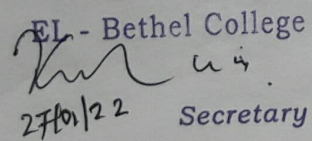 EL - Bethel College
27/01/22
Secretary